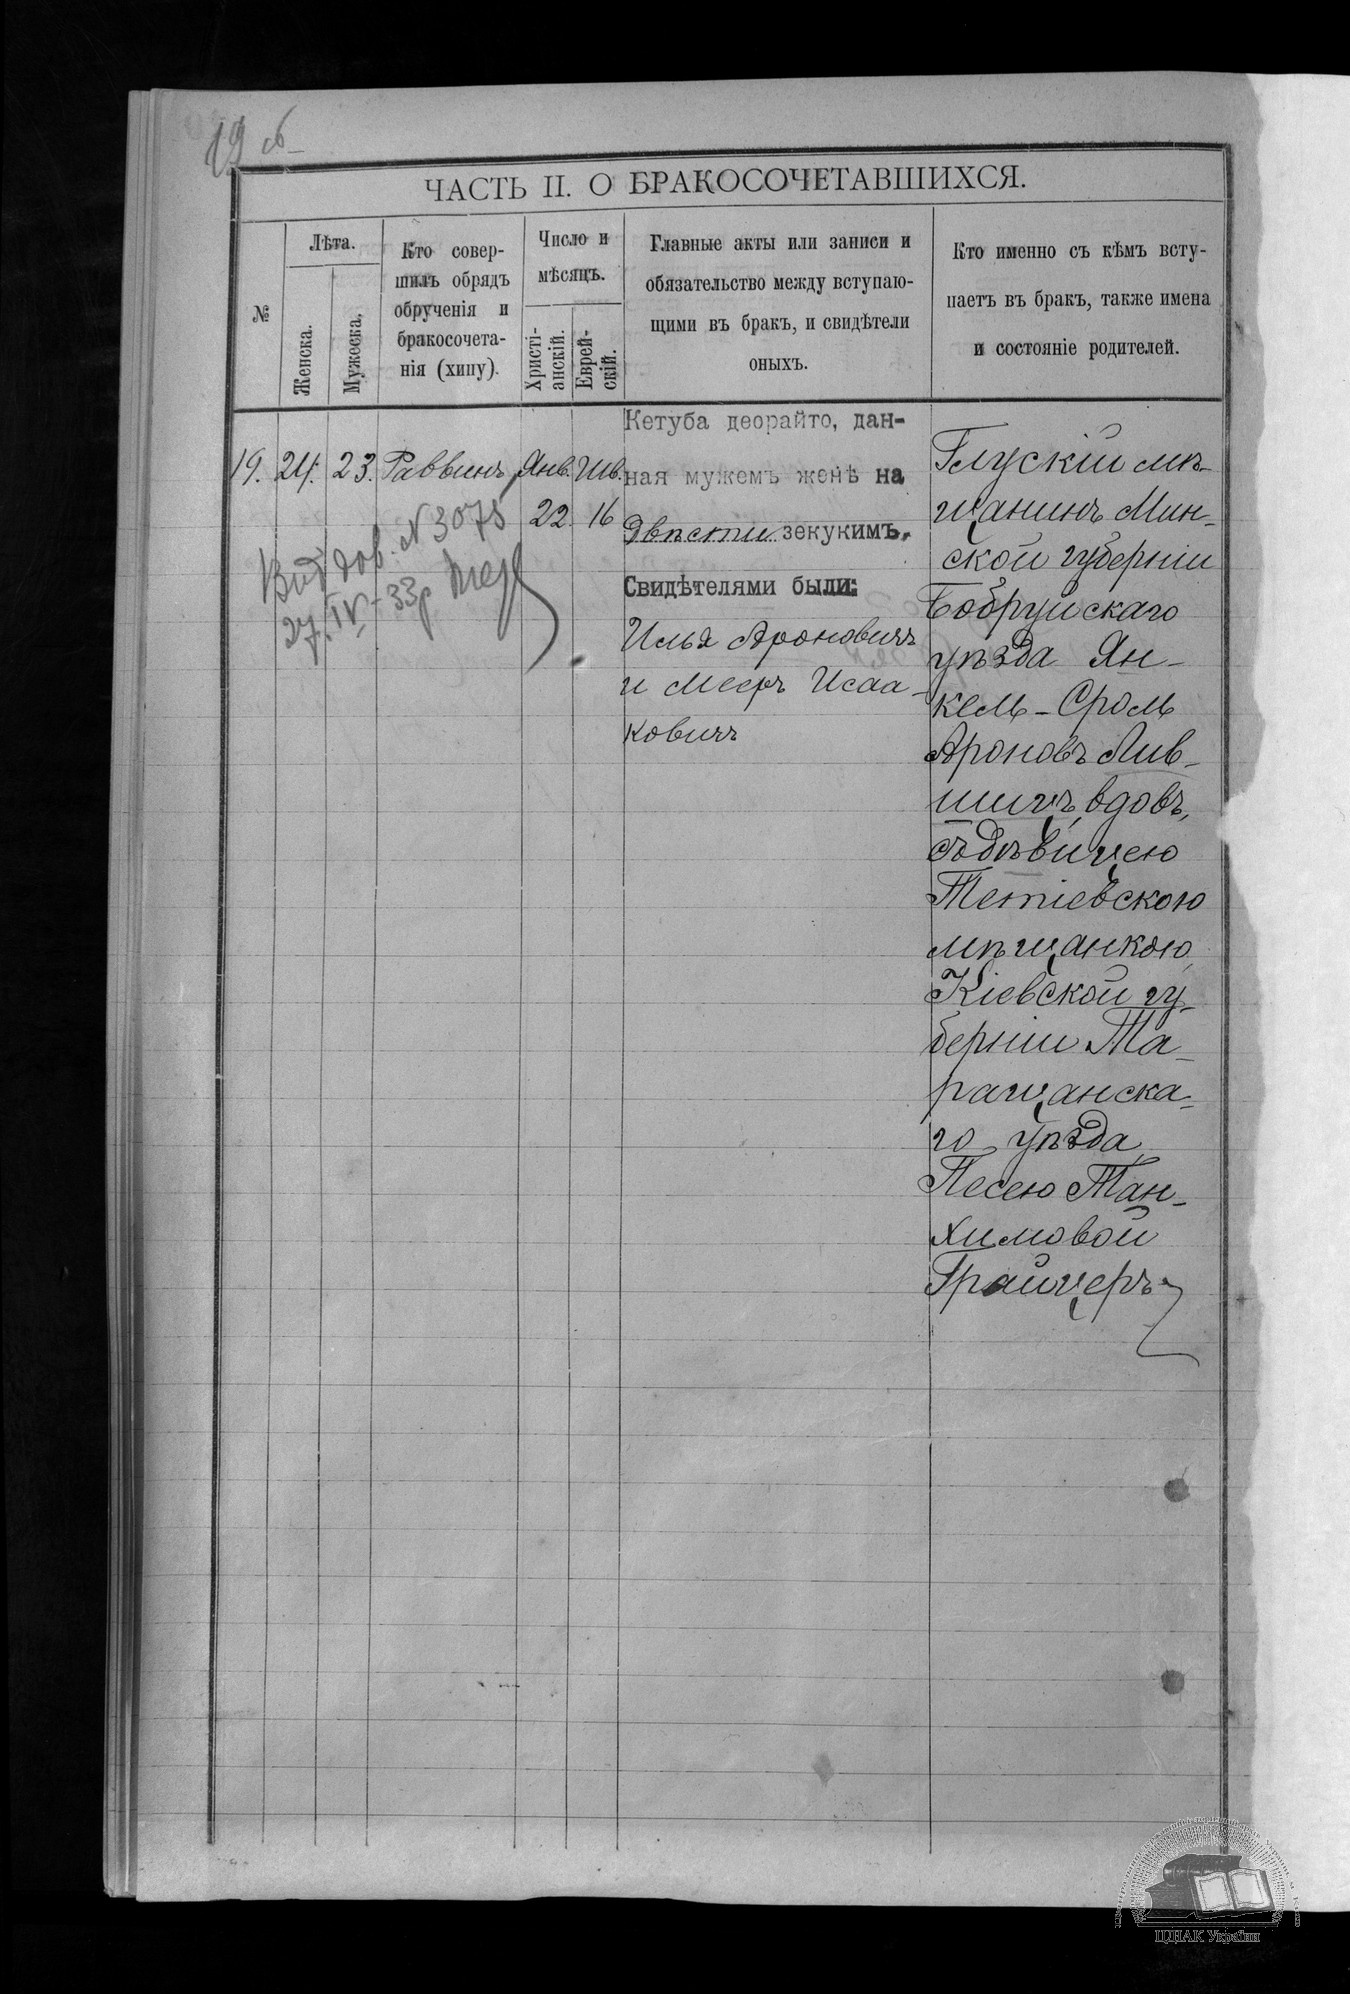 19 об
ЧАСТЬ II. О БРАКОСОЧЕТАВШИХСЯ.
№
Лѣта.
Женска.
Мужеска.
Кто совер-
шилъ обрядъ
обрученія и
бракосочета-
нія (хипу).
Число и
мѣсяцъ.
Христі-
анскій.
Еврей-
скій.
Главные акты или записи и
обязательство между вступаю-
щими въ бракъ, и свидѣтели
оныхъ.
Кто именно съ кѣмъ всту-
паетъ въ бракъ, также имена
и состояніе родителей.
19. 24. 23. Раввинъ Янв. Шв.
22 16
Вид дов. N 3075
27. IV - 33р
Кетуба деорайто, дан-
ная мужемъ женѣ на
двѣсти зекукимъ.
Свидѣтелями были:
Илья Ароновичъ
и Мееръ Исаа-
ковичъ
Глускій мѣ-
щанинъ Мин-
ской губерніи
Бобруйскаго
уѣзда Ян-
кель-Сроль
Ароновъ Лив-
шицъ, вдовъ,
съ дѣвицею
Тетіевскою
мѣщанкою,
Кіевской гу-
берніи Та-
ращанска-
го уѣзда,
Песею Тан-
химовой
Грайцеръ
ЦДІАК України